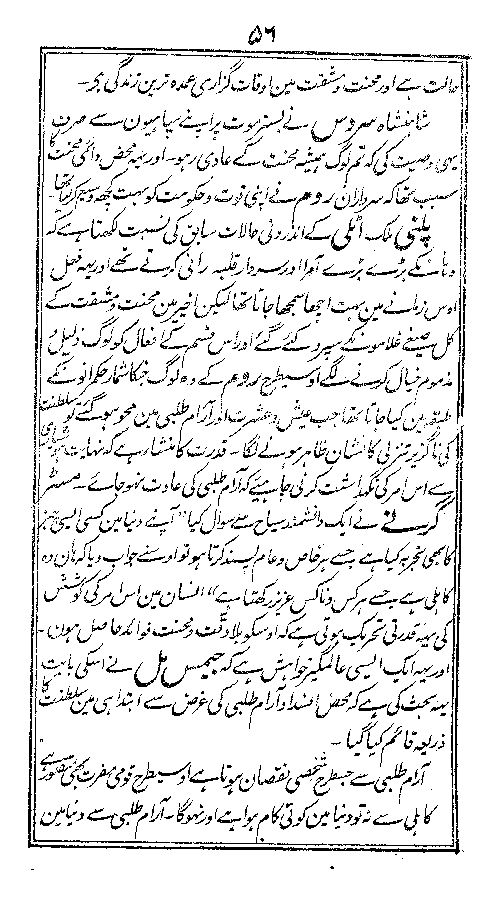 ۵۶
حالت ہے اور محنت و مشقت مین اوقات گزاری عمدہ ترین زندگی ہے۔
شاہنشاہ سروس نے بستر موت پر اپنے سپاہیون سے صرف
یہی وصیت کی کہ تم لوگ ہمیشہ محنت کے عادی رہو۔ اور یہہ محض دائمی محنت کا
سبب تھا کہ سرداران روم نے اپنی قوت و حکومت کو بہت کچھ وسیع کر لیا تھا۔
پلنی ملک اٹلی کے اندرونی حالات سابق کی نسبت لکھتا ہے کہ
وہانکے بڑے بڑے امرا اور سردار قلبہ رانی کرتے تھے اور یہہ فعل
اوس زمانے مین بہت اچھا سمجھا جاتا تھا لیکن اخیر مین محنت و مشقت کے
کل صیغے غلامونکے سپرد کئے گئے اور اس قسم کے افعال کو لوگ ذلیل و
مذموم خیال کرنے لگے اوسیطرح روم کے وہ لوگ جنکا شمار حکمرانونکے
طبقہ مین کیا جاتا تھا جب عیش و عشرت اور آرام طلبی مین محو ہو گئے تو سلطنت
کی ناگزیر تنزلی کا نشان ظاہر ہونے لگا۔ قدرت کا منشا ہے کہ نہایت ہوشیاری
سے اس امر کی نگہداشت کرنی چاہیے کہ آرام طلبی کی عادت نہو جائے۔ مسٹر
گرنے نے ایک دانشمند سیاح سے سوال کیا "آپنے دنیا مین کسی ایسی چیز
کا بھی تجربہ کیا ہے جسے ہر خاص و عام پسند کرتا ہو تو اوسنے جواب دیا کہ ہان وہ
کاہلی ہے جسے ہر کس و ناکس عزیز رکھتا ہے" انسان مین اس امر کی کوشش
کی یہہ قدرتی تحریک ہوتی ہے کہ اوسکو بلا دقت و محنت فوائد حاصل ہون۔
اور یہہ ایک ایسی عالمگیر خواہش ہے کہ جیمس مل نے اسکی بابت
یہہ بحث کی ہے کہ محض انسداد آرام طلبی کی غرض سے ابتدا ہی مین سلطنت کا
ذریعہ قائم کیا گیا۔
آرام طلبی سے جسطرح شخصی نقصان ہوتا ہے اوسیطرح قومی مضرت بھی متصور ہے
کاہلی سے نہ تو دنیا مین کوئی کام ہوا ہے اور نہوگا۔ آرام طلبی سے دنیا مین